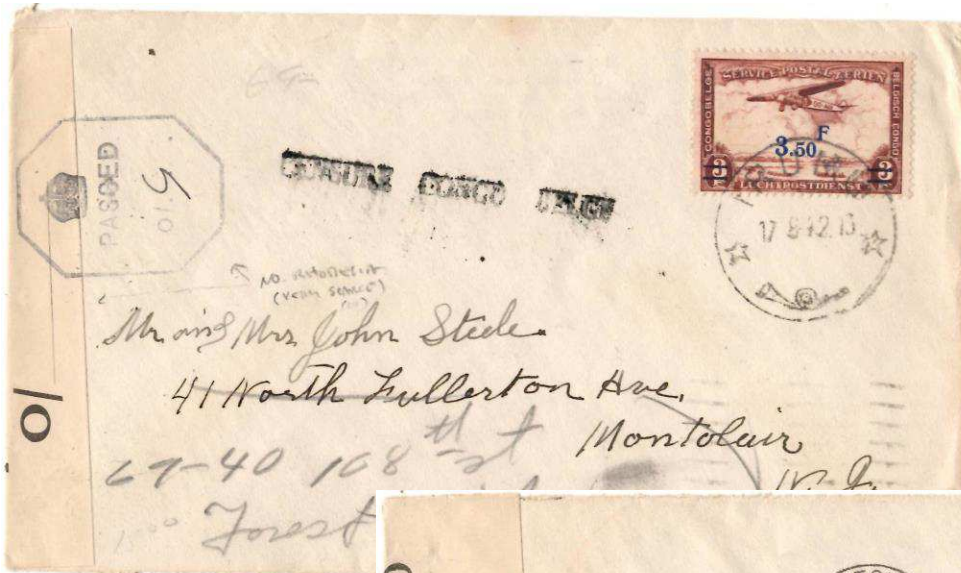 SERVICE POSTAL AERIEN
CONGO BELGE
BELGISCH CONGO
3.50 F
LUCHTPOSTDIENST
17 8 42 15
CENSURE CONGO BELGE
PASSED
5
01.
NO
Mr. and Mrs. John Steele
41 North Fullerton Ave.
Montclair
N. J.
69-40 108th st
Forest